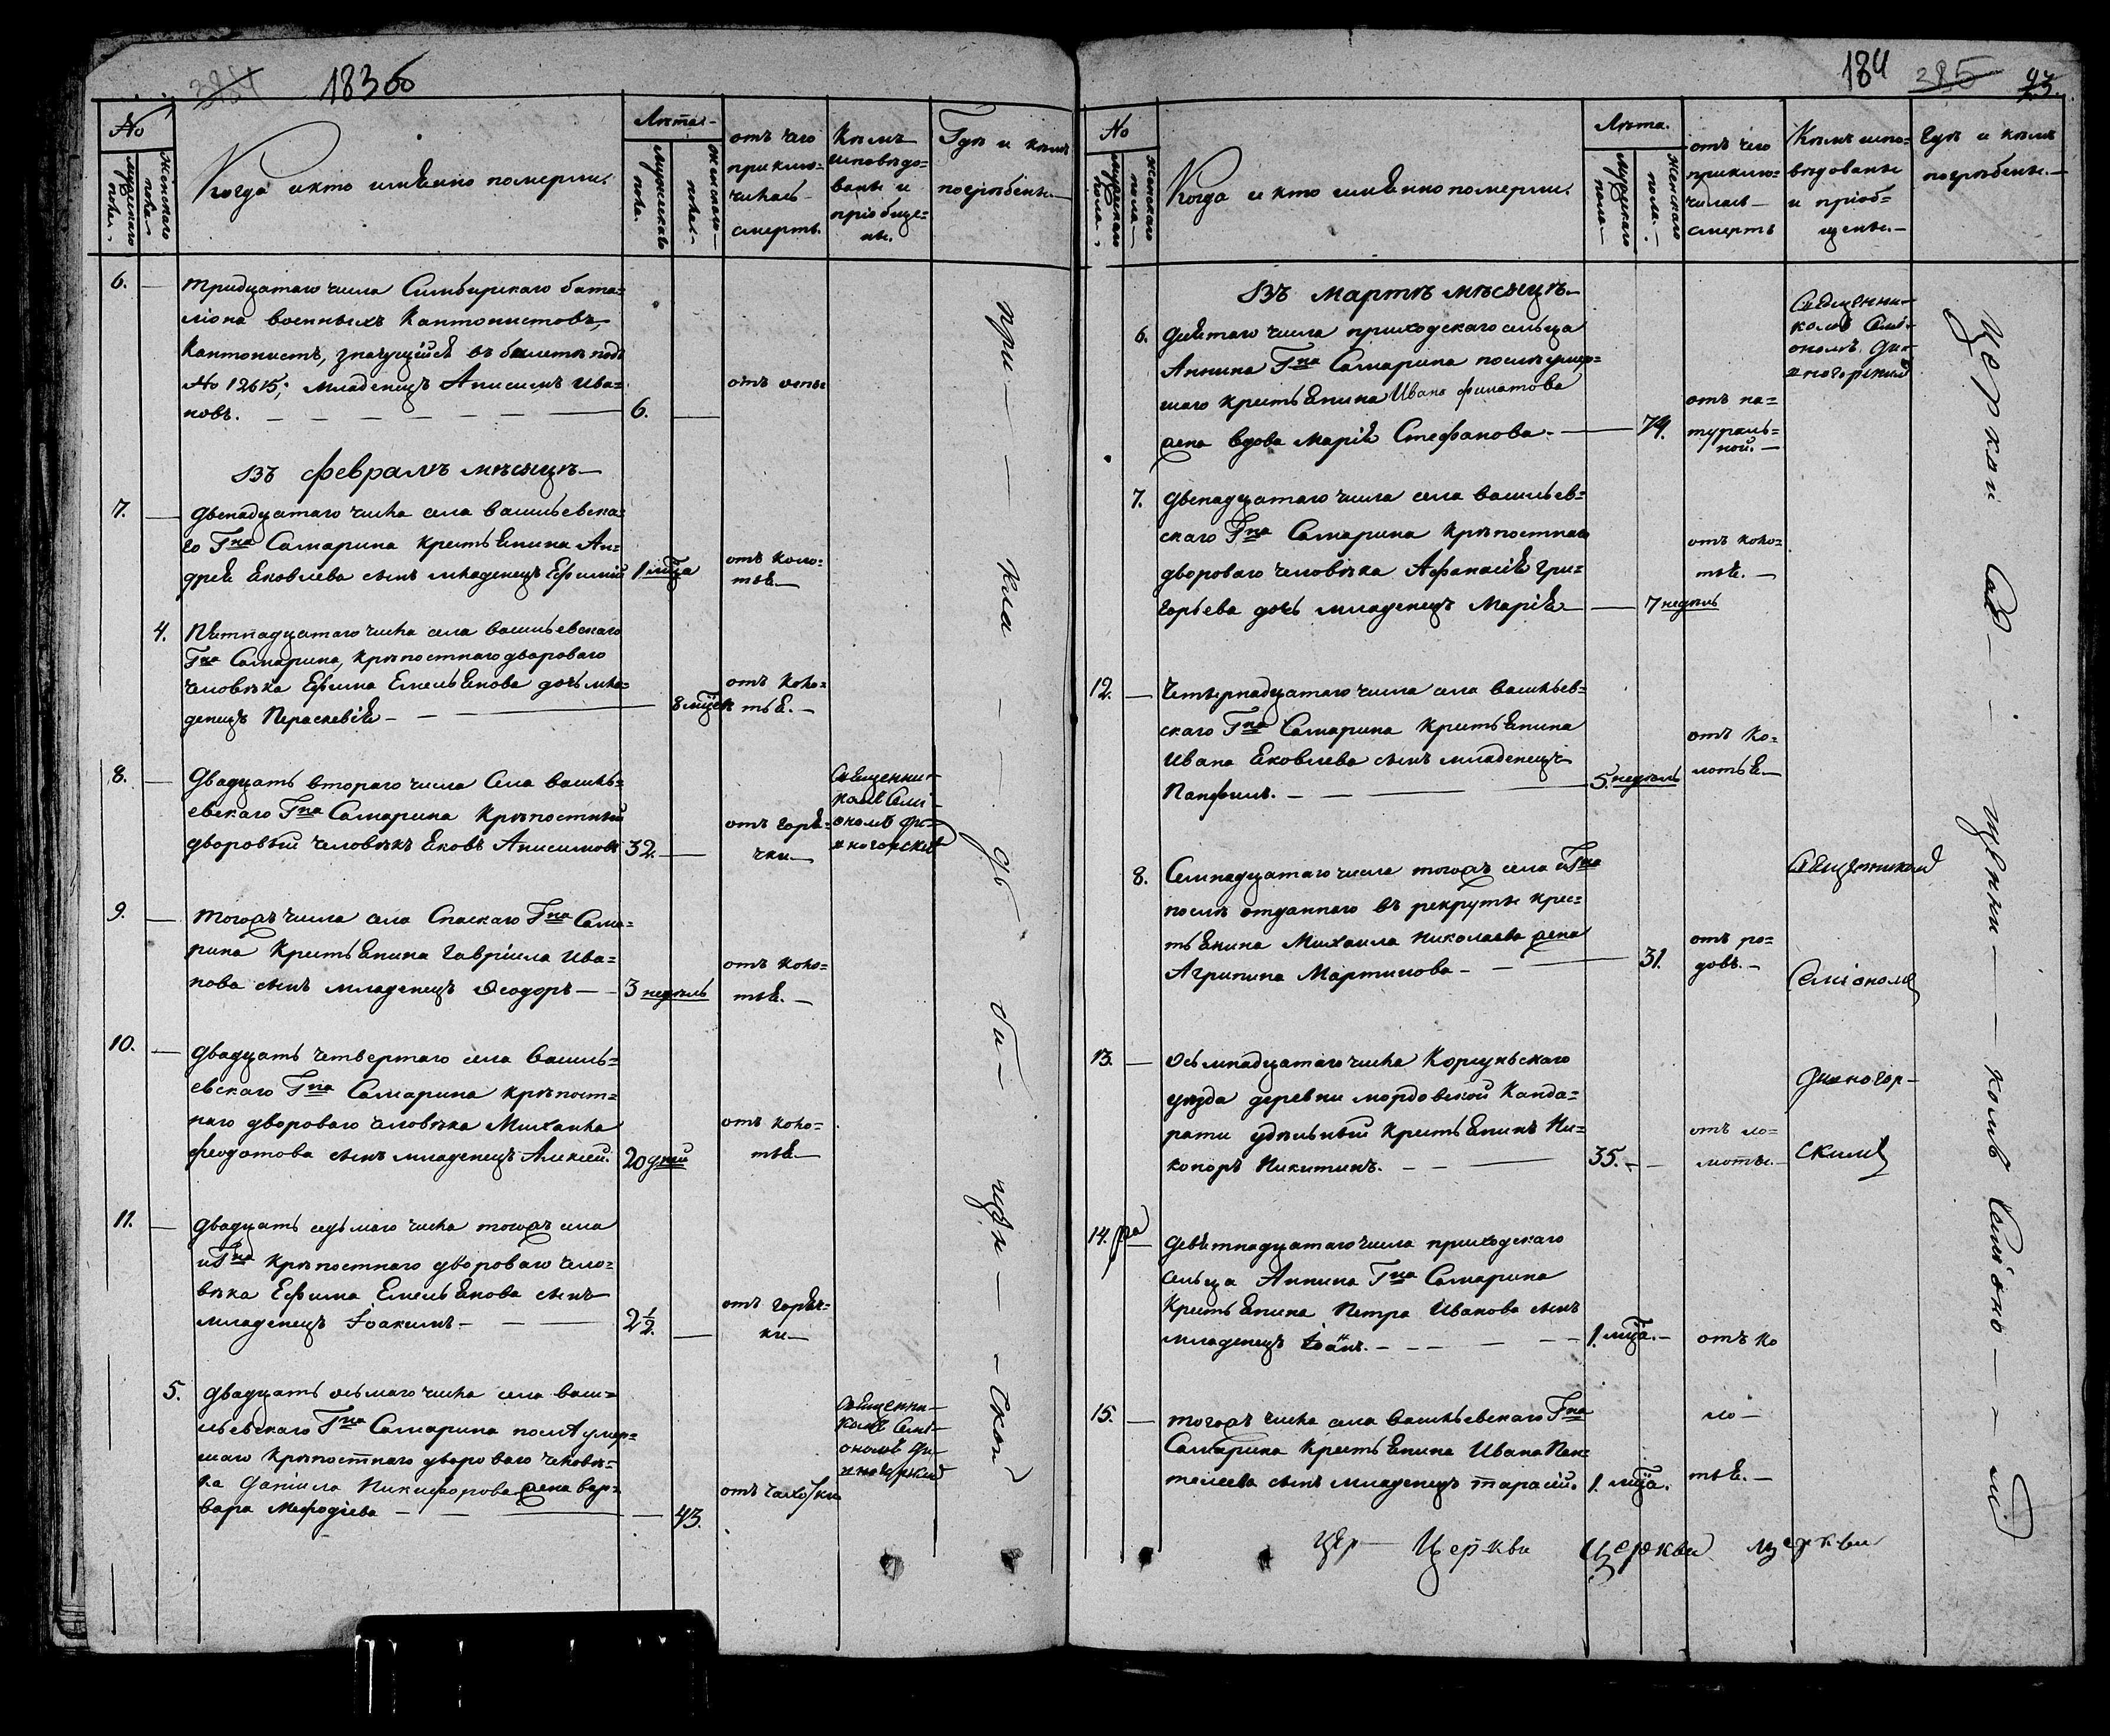 384 183об
№
Мужскаго пола.
Женскаго пола
Когда и кто имянно померли.
Лѣта.
Мужскаго пола.
Женскаго пола.
отъ чего приклю=
чилась
смерть.
Кѣмъ
исповѣдо=
ваны и
пріобще=
ны.
Гдѣ и кѣмъ
погребены.
6. — тридцатаго числа Симбирскаго бата=
ліона военныхъ Кантонистовъ,
Кантонистъ, значущійся въ билетѣ подъ
№ 12615; младенецъ Анисимъ Ива= отъ оспы
новъ. — 6. —
Въ февралѣ мѣсяцѣ
7. — двенадцатаго числа села Васильевска=
го Гна Самарина крестьянина Ан=
дрея Яковлева сынъ младенецъ Ефимій 1 мца отъ коло=
тья
4. Пятнадцатаго числа села Васильевскаго
Гна Самарина, крѣпостнаго двороваго
человѣка Ефима Емельянова дочь мла= отъ коло=
денецъ Параскевія — 8 мцев тья.
8. — Двадцать втораго числа Села Василь=
евскаго Гна Самарина крѣпостный
дворовый человѣкъ Яковъ Анисимовъ 32. — отъ горя=
чки
Священни=
комъ Симі=
ономъ Ди=
вногорскимъ
9. — тогожъ числа села Спаскаго Гна Сама=
рина крестьянина Гавріила Ива=
нова сынъ младенецъ Ѳеодоръ — 3 недѣль отъ коло=
тья.
10. — двадцать четвертаго села Василь=
евскаго Гна Самарина крѣпост=
наго двороваго человѣка Михаила отъ коло=
Феодотова сынъ младенецъ Алексій. 20 дней тья
11. — двадцать седьмаго числа тогожъ села
и Гна крѣпостнаго двороваго чело=
вѣка Ефима Емельянова сынъ отъ горяч=
младенецъ Іоакимъ — 2½. — ки
5. двадцать осьмаго числа села Васи=
льевскаго Гна Самарина послѣ умер=
шаго крѣпостнаго двороваго человѣ=
ка Даніила Никифорова жена Вар= отъ чахотки
вара Мефодіева — 43.
Священни=
комъ Симі=
ономъ Ди=
вногорскимъ
при — кла — дб — би — щѣн — ской
184 385
№
Мужскаго пола.
Женскаго пола
Когда и кто имянно померли.
Лѣта.
Мужскаго пола
Женскаго пола.
отъ чего
приклю=
чилась
смерть
Кѣмъ испо=
вѣдованы
и пріоб=
щены.
Гдѣ и кѣмъ
погребены.
Въ мартѣ мѣсяцѣ
6. девятаго числа приходскаго сельца
Аннина Гна Самарина послѣ умер=
шаго крестьянина Ивана Филатова отъ на=
жена вдова Марія Стефанова — 74. тураль=
ной.
Священни=
комъ Симі=
ономъ Див=
ногорскимъ
7. двенадцатаго числа села Васильев=
скаго Гна Самарина крѣпостнаго
двороваго человѣка Афанасія Гри= отъ коло=
горьева дочь младенецъ Марія — 7 недѣль тья.
12. — Четырнадцатаго числа села Васильев=
скаго Гна Самарина крестьянина
Ивана Яковлева сынъ младенецъ отъ ко=
Панфилъ. — 5. недѣль лотья
8. Семнадцатаго числа тогожъ села и Гна
послѣ отданнаго въ рекруты крес=
тьянина Михаила Николаева жена отъ ро=
Агрипина Мартинова — 31. довъ.
Священникомъ
Симіономъ
Дивногор=
скимъ
13. — Осьмнадцатаго числа Корсунскаго
уѣзда деревни мордовской Канда=
рати удѣльный крестьянинъ Ни= отъ ло=
каноръ Никитинъ. — 35. — моты.
14. — девятнадцатаго числа приходскаго
сельца Аннина Гна Самарина
крестьянина Петра Иванова сынъ
младенецъ Іоанъ. — 1. мца. — отъ ко
15. — тогожъ числа села Васильевскаго Гна ло=
Самарина крестьянина Ивана Пан=
телеева сынъ младенецъ Тарасій. 1. мца. тья.
Церкви Церкви церкви